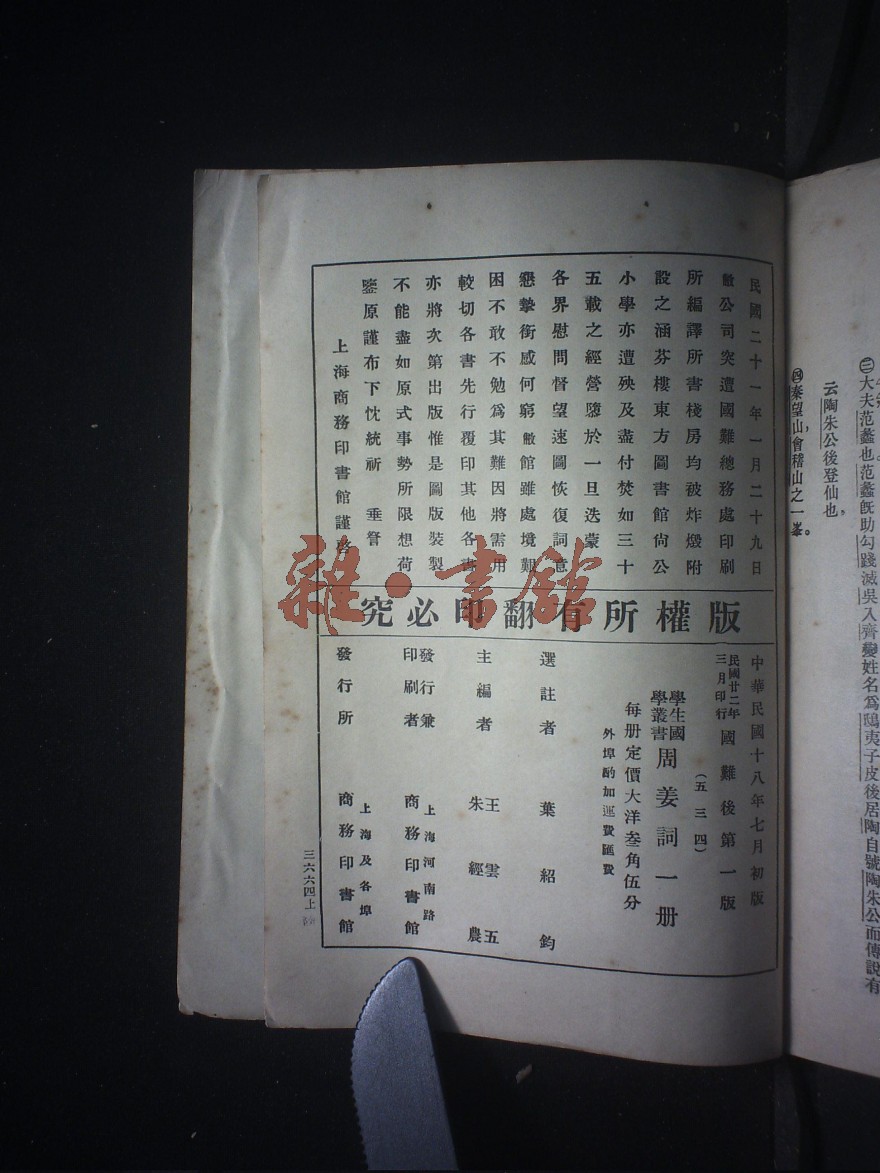 民國二十一年一月二十九日
敝公司突遭國難總務處印刷
所編譯所書棧房均被炸燬附
設之涵芬樓東方圖書館尙公
小學亦遭殃及盡付焚如三十
五載之經營隳於一旦迭蒙
各界慰問督望速圖恢復詞意
懇摯銜感何窮敝館雖處境艱
困不敢不勉爲其難因將需用
較切各書先行覆印其他各書
亦將次第出版惟是圖版裝製
不能盡如原式事勢所限想荷
鑒原謹布下忱統祈 垂詧
上海商務印書館謹啓
究必印翻有所權版
中華民國十八年七月初版
民國廿二年三月印行 國難後第一版
(五三四)
學生國學叢書 周姜詞一册
每册定價大洋叁角伍分
外埠酌加運費匯費
選註者 葉紹鈞
主編者 王雲五 朱經農
發行兼印刷者 上海河南路 商務印書館
發行所 上海及各埠 商務印書館
三六六四上
㊂大夫范蠡也范蠡旣助勾踐滅吳入齊變姓名爲鴟夷子皮後居陶自號陶朱公而傳說有
云陶朱公後登仙也,
㊃秦望山,會稽山之一峯。
雜·書館